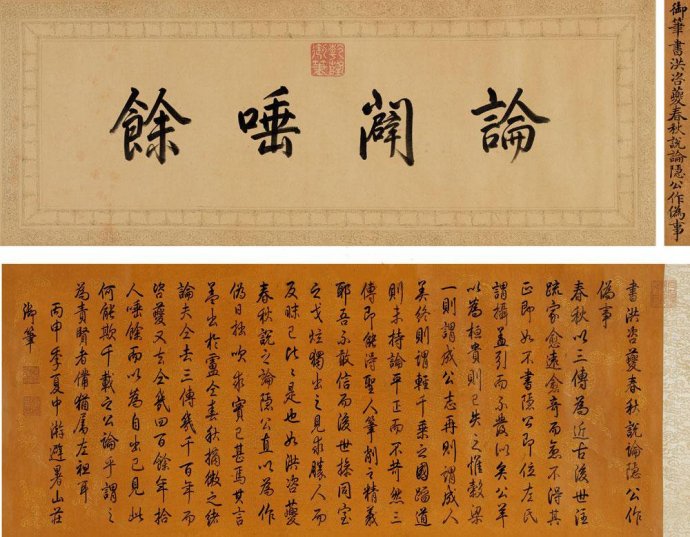 論闢唾餘
乾隆御筆
御筆書洪咨夔春秋說論隱公作偽事
書洪咨夔春秋說論隱公作
偽事
春秋以三傳為近古後世注
疏家愈遠愈奇而愈不得其
正即如不書隱公即位左氏
謂攝蓋引而不發以矣公羊
以為桓貴則已失之惟穀梁
一則謂成公志再則謂成人
美終則謂輕千乘之國蹈道
則未持論平正而不苛然三
傳即能得聖人筆削之精義
耶吾不敢信而後世操同室
之戈炫獨出之見求勝人而
反昧己比比是也如洪咨夔
春秋說之論隱公直以為作
偽日拙吹求實已甚焉其言
蓋出於盧仝春秋摘微之緒
論夫仝去三傳幾千百年而
咨夔又去仝幾四百餘年拾
人唾餘而以為自出己見此
何能欺千載之公論乎謂之
為責賢者備猶屬左袒耳
丙申季夏中游避暑山莊
御筆